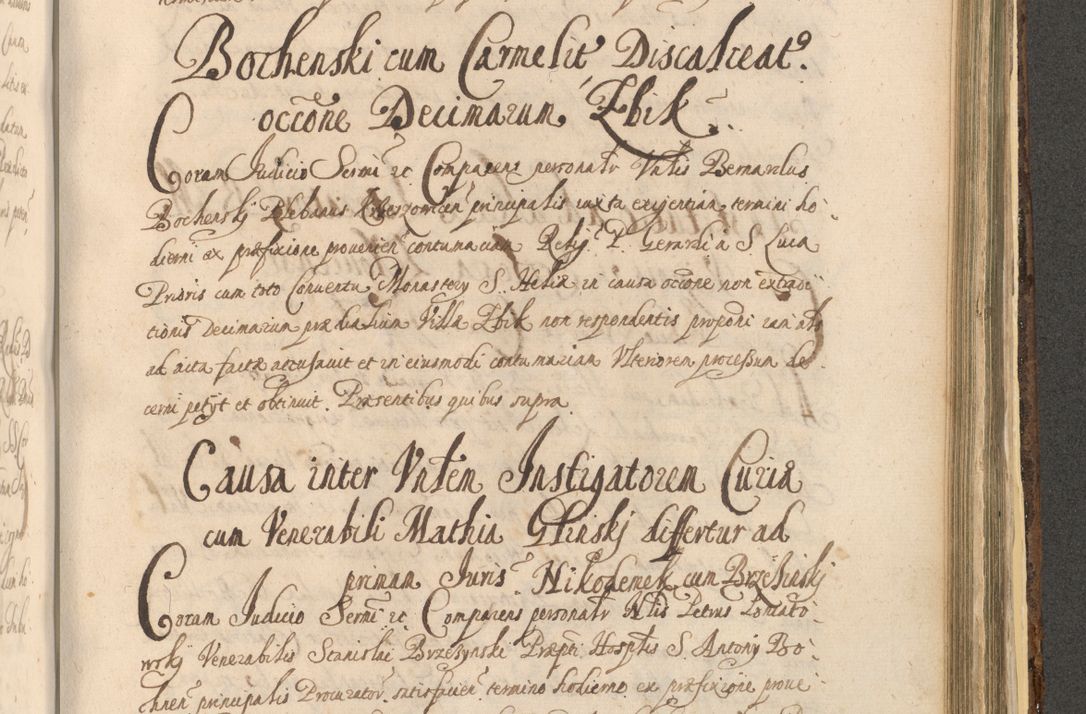 Bochenski cum Carmelit' Discalceat9.
occõne Decimarum Zbik
Coram Judicio Sermi etc Comparens personalr Vnlis Bernardus
Bochenskj Plebanus principalis iuxta exigentiam termini ho-
dierni ex præfixione provenien' contumaciam Relig' P. Gerardi a S. Luca
Prioris cum toto Conventu Monastery S. Heliæ in causa occõne non extradi
tionis Decimarum prædialium Villæ Zbik non respondentis proponi
ad acta factæ accusavit et in eiusmodi contumaciam Vlteriorem processum de-
cerni petyt et obtinuit. Præsentibus quibus supra.
Causa inter Vnlem Instigatorem Curiæ
cum Venerabili Mathia Glinskj differtur ad
primam Juris. Nikodemek cum Brzezinskj
Coram Judicio Sermi etc Comparens personalr Petrus
wskj Venerabilis Stanislai Brzezynski Præpti Hosplis S. Antony Bo-
chnen' principalis Procurator satisfacien' termino hodierno ex præfixione prove-